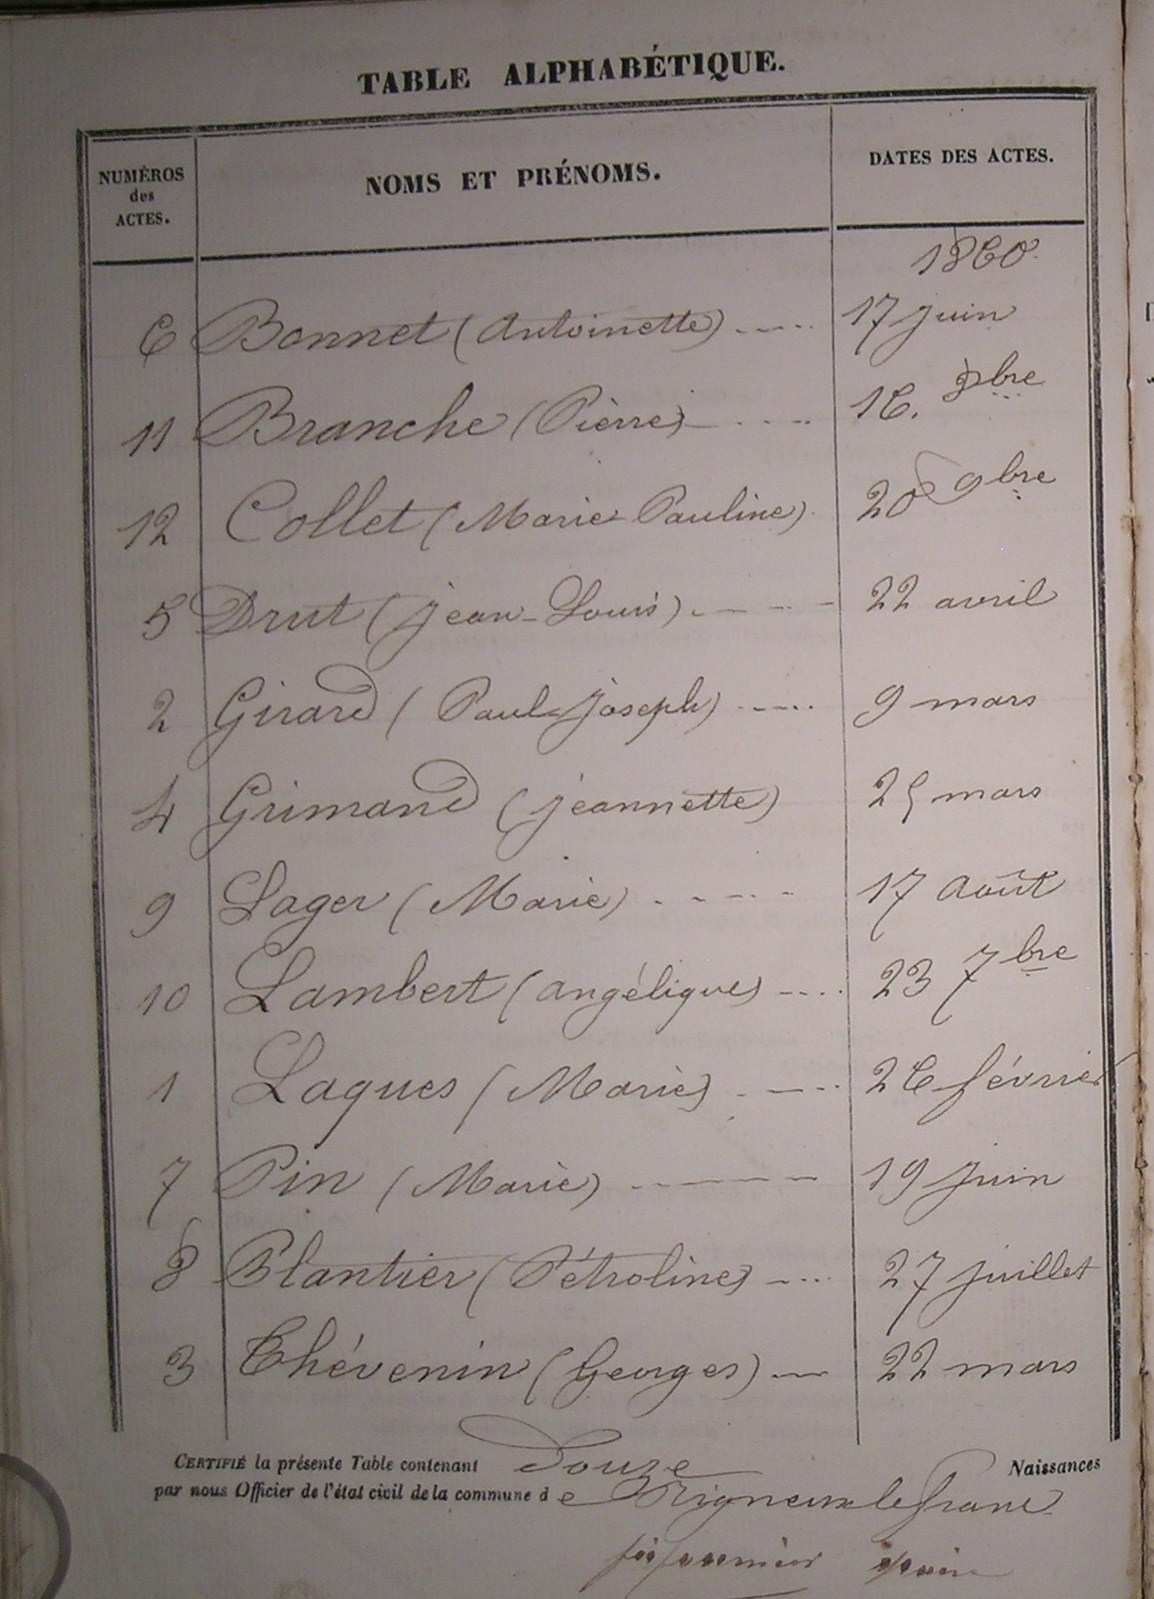 TABLE ALPHABÉTIQUE.
NUMÉROS des ACTES. NOMS ET PRÉNOMS. DATES DES ACTES.
1860
6 Bonnet (Antoinette) 17 juin
11 Branche (Pierre) 16. bre
12 Collet (Marie Pauline) 20 9bre
5 Drut (jean-Louis) 22 avril
2 Girard (Paul joseph) 9 mars
4 Grimand (jeannette) 25 mars
9 Lager (Marie) 17 Août
10 Lambert (Angélique) 23 7bre
1 Laques (Marie) 26 février
7 Pin (Marie) 19 juin
8 Plantier (Pétroline) 27 juillet
3 Thévenin (Georges) 22 mars
CERTIFIÉ la présente Table contenant Douze Naissances
par nous Officier de l'état civil de la commune de Rigneux le franc